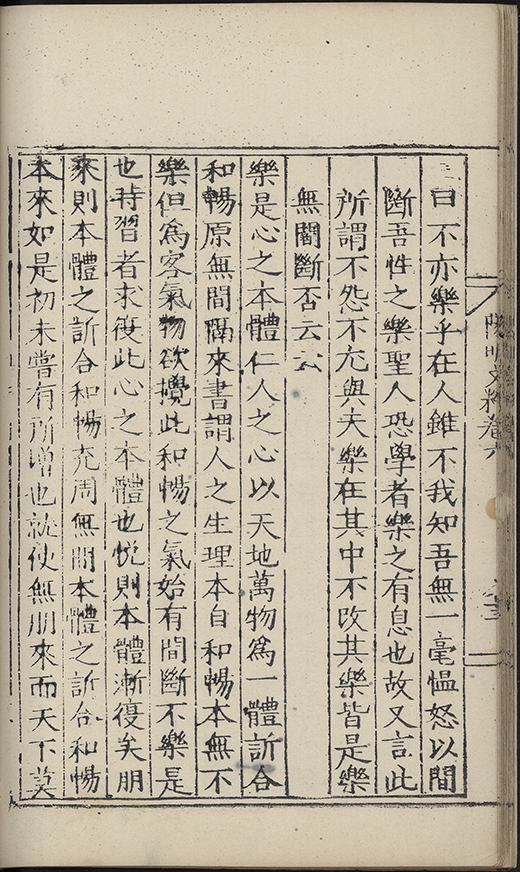 陽明文粹卷六
曰不亦樂乎在人雖不我知吾無一毫慍怒以間
斷吾性之樂聖人恐學者樂之有息也故又言此
所謂不怨不尤與夫樂在其中不改其樂皆是樂
無間斷否云云
樂是心之本體仁人之心以天地萬物爲一體訢合
和暢原無間隔來書謂人之生理本自和暢本無不
樂但爲客氣物欲攪此和暢之氣始有間斷不樂是
也時習者求復此心之本體也悅則本體漸復矣朋
來則本體之訢合和暢充周無間本體之訢合和暢
本來如是初未嘗有所增也就使無朋來而天下莫